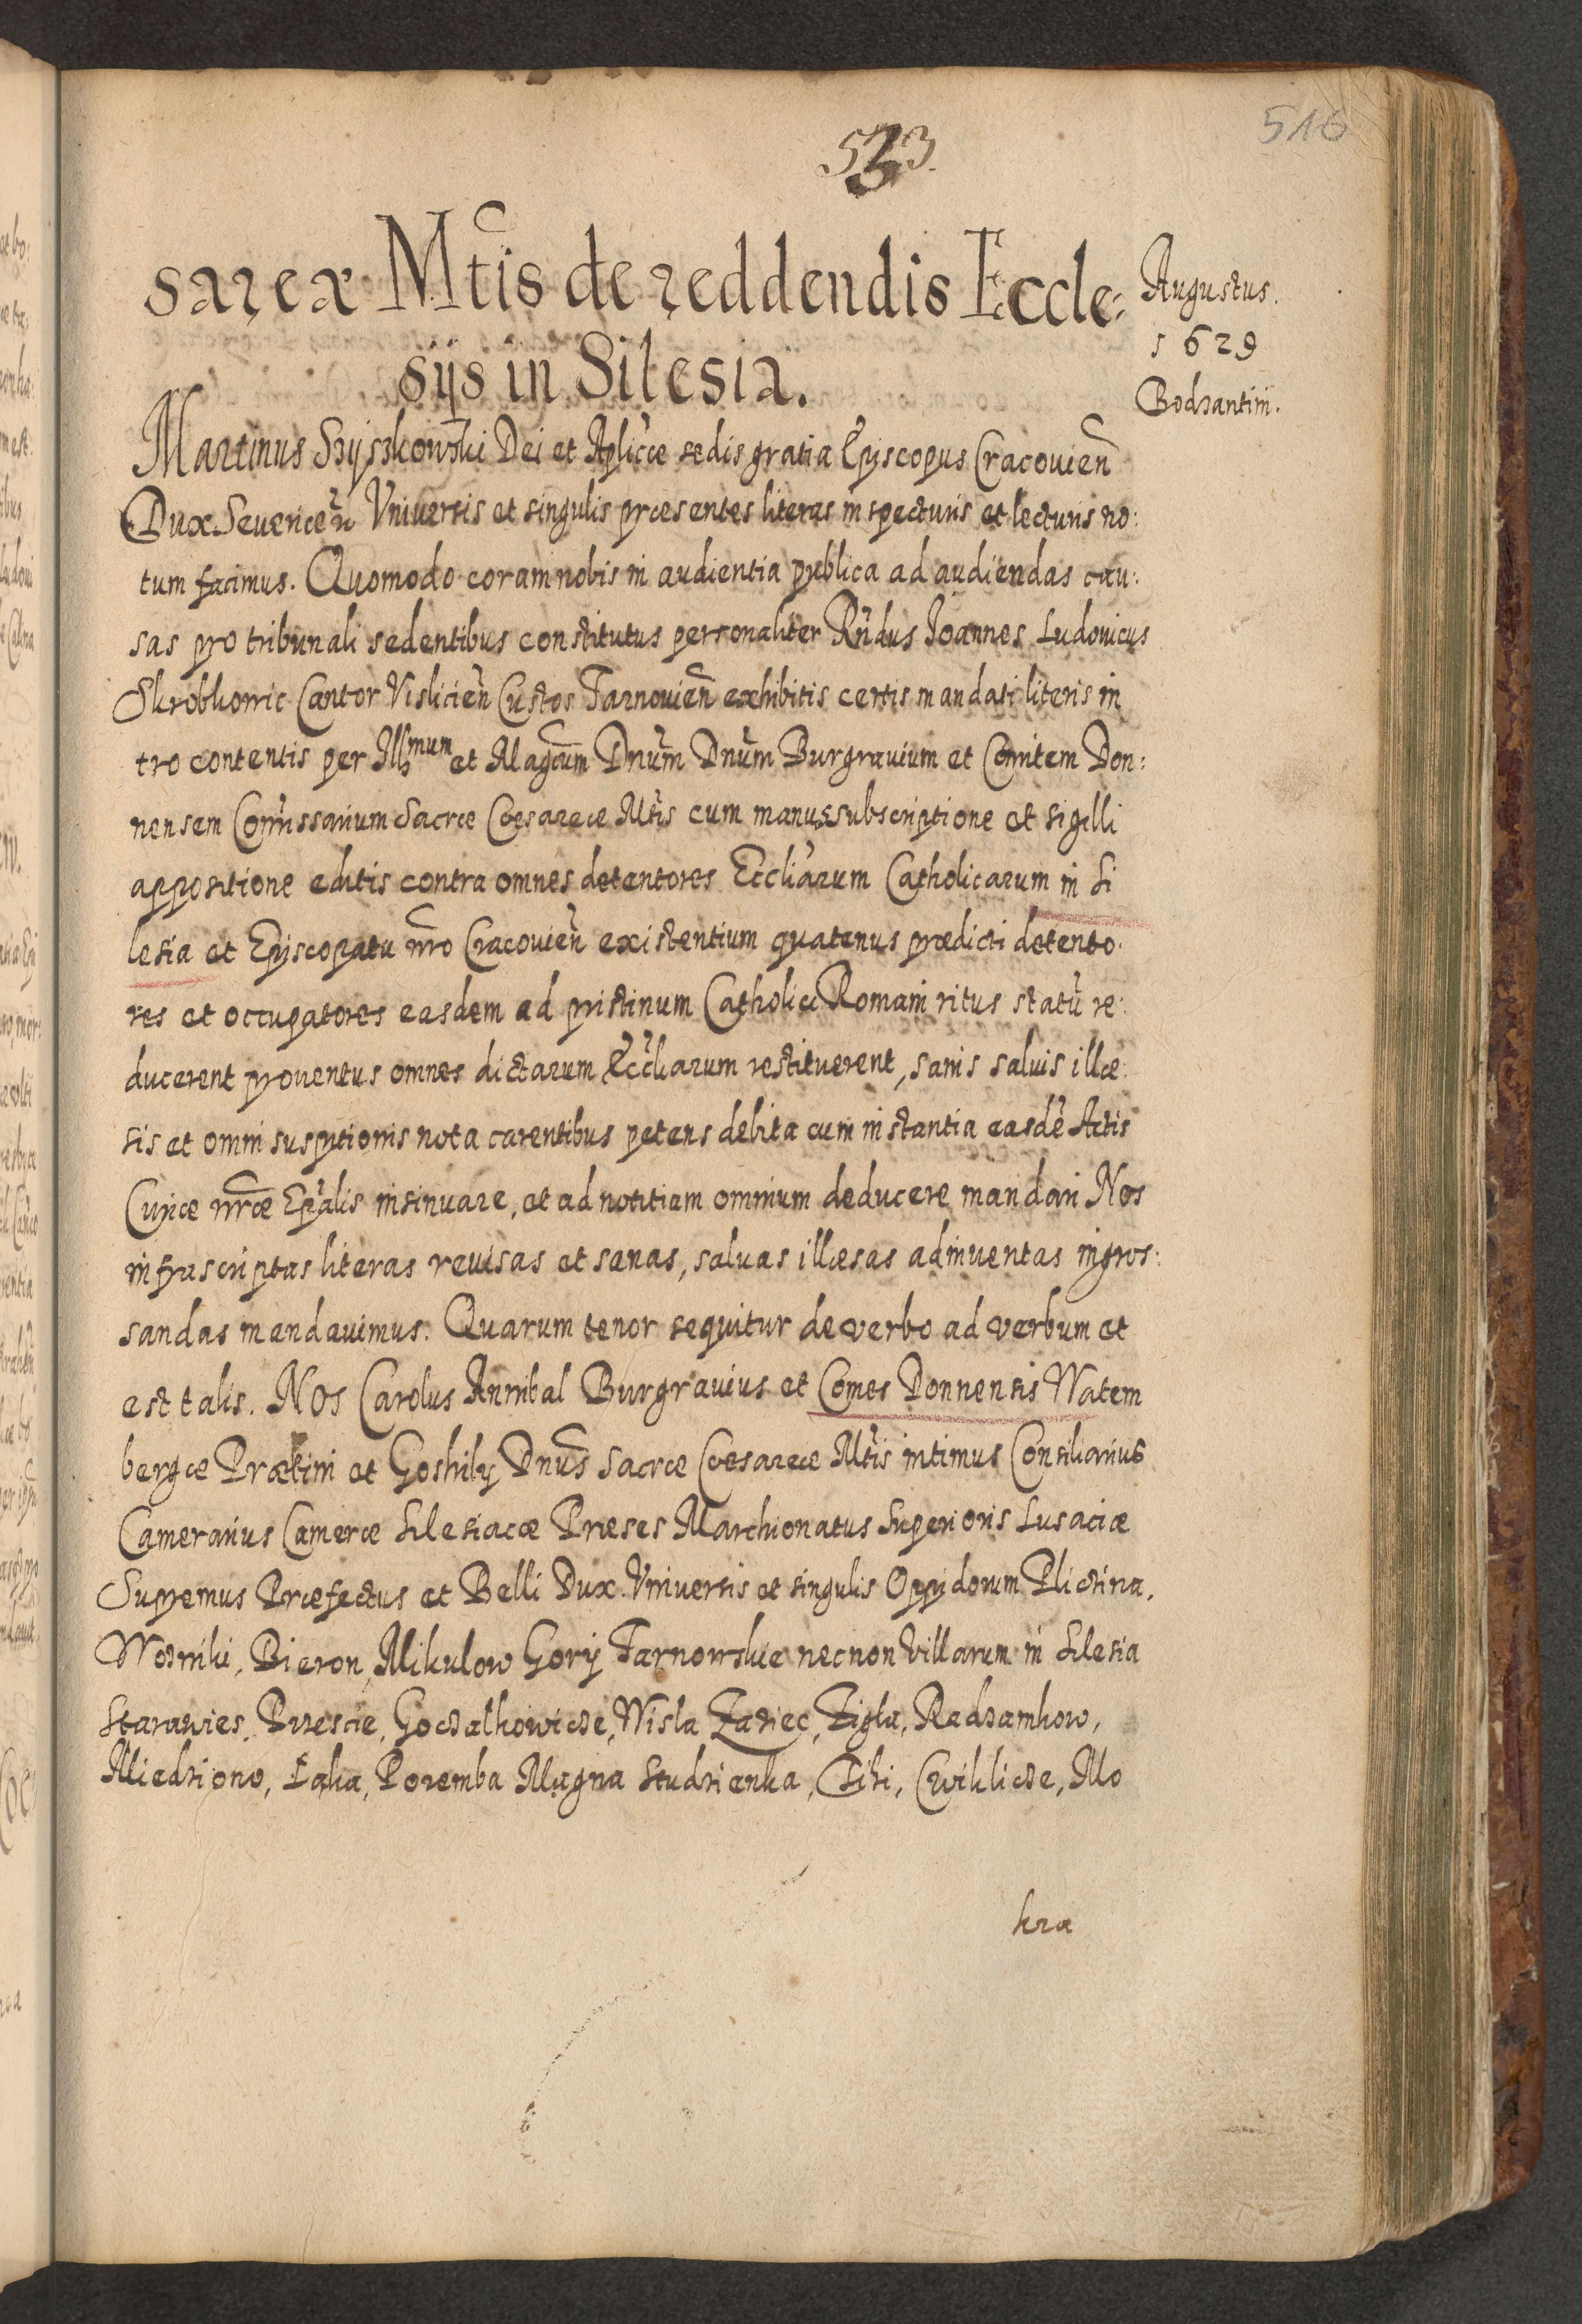 533.
516
sareæ Mtis de reddendis Eccle:
sijs in Silesia.
Augustus.
1629
Bodzantini.
Martinus Szyszkowski Dei et Aplicæ sedis gratia Episcopus Cracovien
Dux Severiæn Universis et singulis præsentes literas inspecturis et lecturis no:
tum facimus. Quomodo coram nobis in audientia publica ad audiendas cau:
sas pro tribunali sedentibus constitutus personaliter Rndus Joannes Ludovicus
Skrobkowic Cantor Vislicien Custos Tarnovien exhibitis certis mandati literis in
tro contentis per Illmum et Magcum Dnum Dnum Burgravium et Comitem Don:
nensem Comissarium Sacræ Cæsareæ Mtis cum manus subscriptione et sigilli
appositione editis contra omnes detentores Eccliarum Catholicarum in Si
lesia et Episcopatu nro Cracovien existentium quatenus prædicti detento:
res et occupatores easdem ad pristinum Catholici Romani ritus statu re:
ducerent proventus omnes dictarum Eccliarum restituerent, sanis salvis illæ:
sis et omni susptionis nota carentibus petens debita cum instantia easde Actis
Curiæ nræ Epalis insinuare, et ad notitiam omnium deducere mandari Nos
infrascriptas literas revisas et sanas, salvas illæsas adinventas ingros:
sandas mandavimus. Quarum tenor sequitur de verbo ad verbum et
est talis. Nos Carolus Annibal Burgravius et Comes Donnensis Watem
bergæ Prælini et Goshily Dnus Sacræ Cæsareæ Mtis intimus Consiliarius
Camerarius Cameræ Silesiacæ Præses Marchionatus Superioris Lusaciæ
Supremus Præfectus et Belli Dux. Universis et singulis Oppidorum Plictina,
Wozniki, Bieron, Mikulow Gory Tarnowskie necnon Villarum in Silesia
Starawies, Brzescie, Goczalkowicze, Wisla Zaziec, Zigla, Radzamkow,
Miedziono, Łaka, Poremba Magna Studzienka, Cihi, Cwiklicze, Mo
kra